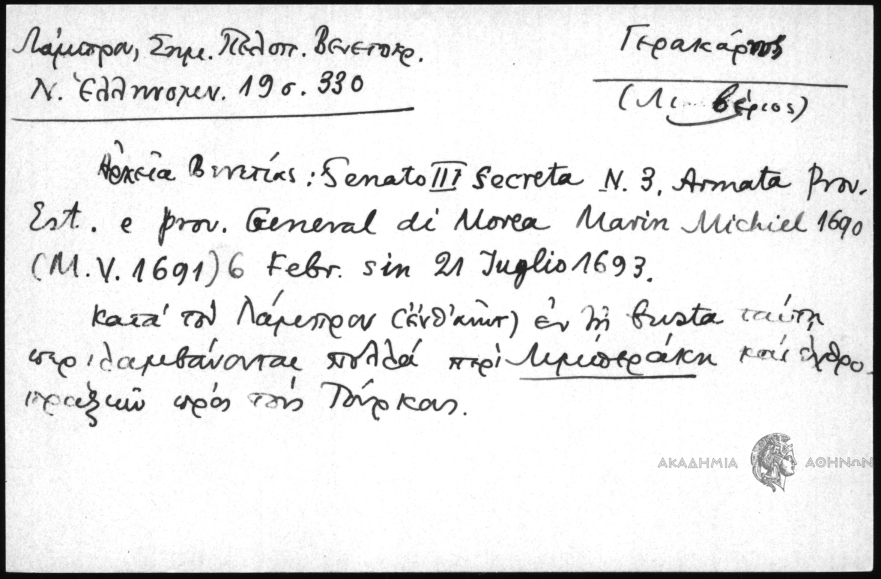 Λάμπρου, Σημ. Πελοπ. Βενετοκρ.
Ν. Ἑλληνομν. 19 σ. 330
Γερακάρης
(Λιμβέριος)
Ἀρχεῖα Βενετίας: Senato III Secreta N. 3. Armata Prov.
Est. e prov. General di Morea Marin Michiel 1690
(M.V. 1691) 6 Febr. sin 21 Iuglio 1693.
κατά τόν Λάμπρον ἐν τῇ busta ταύτῃ
περιλαμβάνονται πολλά περί Λιμπεράκη καί ἐχθρο-
πραξιῶν πρός τούς Τούρκους.
ΑΚΑΔΗΜΙΑ ΑΘΗΝΩΝ